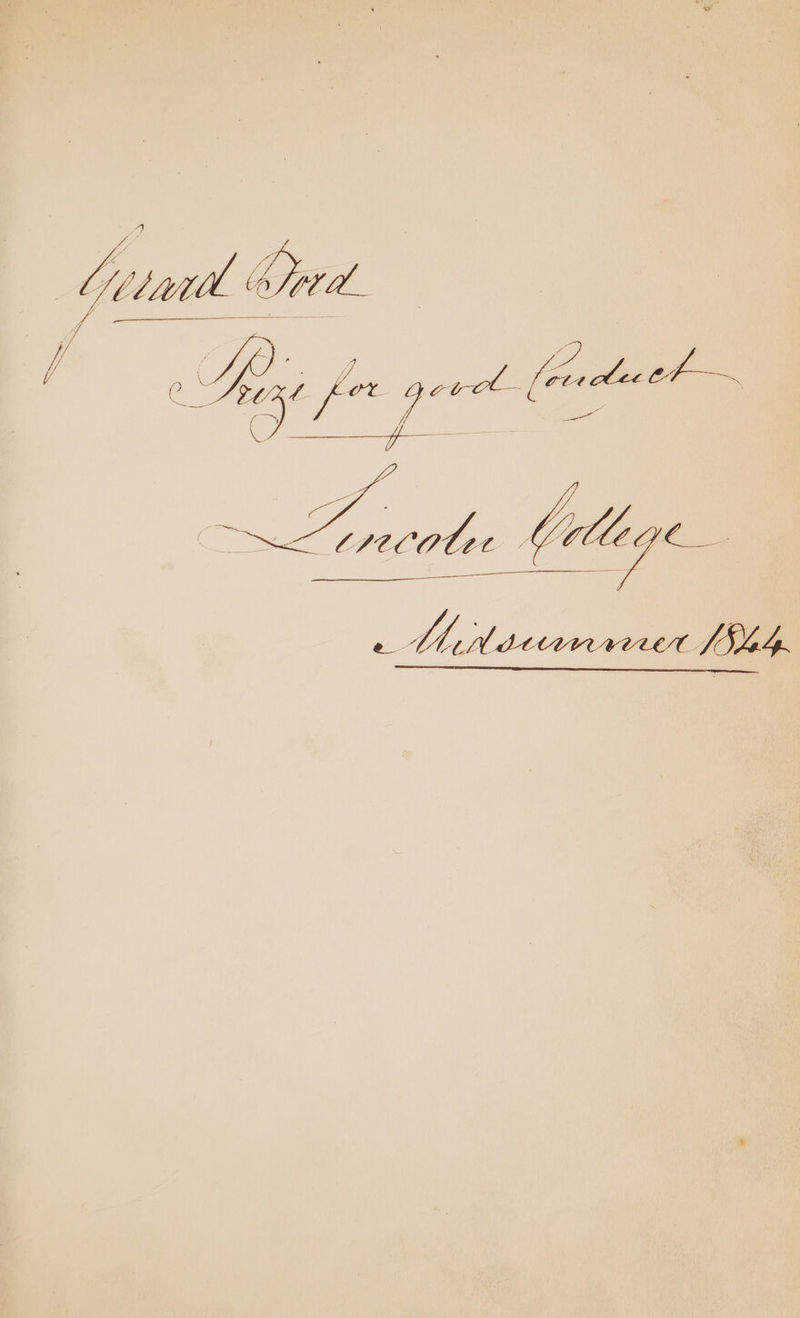 Girard Ford
Prize for good Conduct
Lincoln College
Midsummer 1844